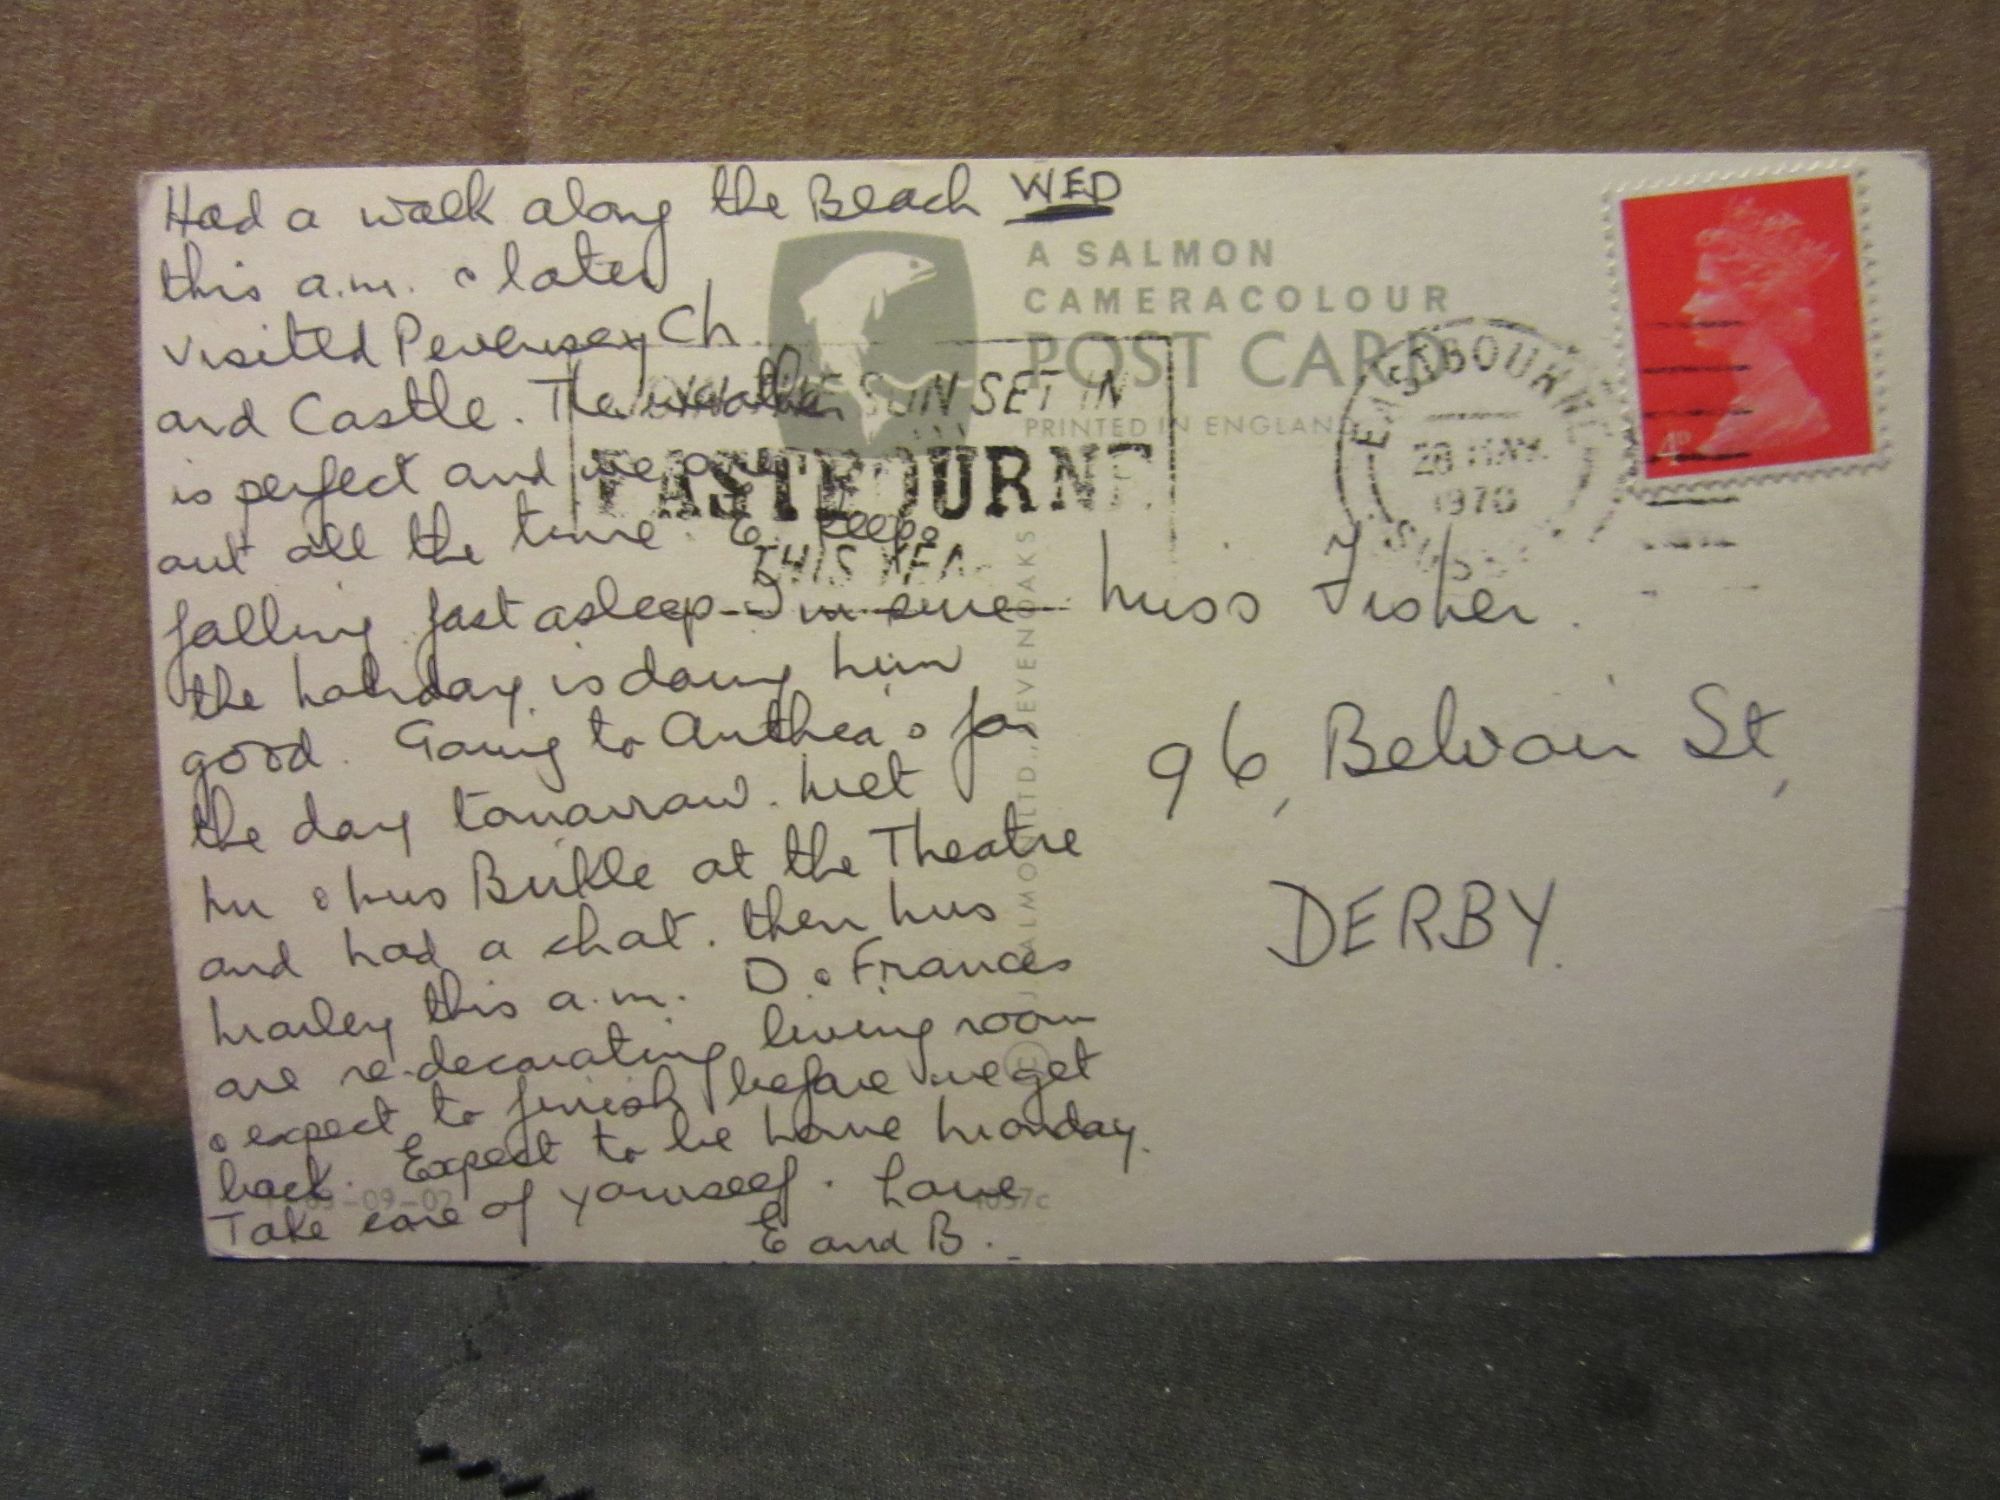 WED
Had a walk along the Beach
this a.m. & later
visited Pevensey Ch
and Castle. The weather
is perfect and we are
out all the time. E. keeps
falling fast asleep - I'm sure
the holiday is doing him
good. Going to Anthea's for
the day tomorrow. Met
Mr & Mrs Bukle at the Theatre
and had a chat. then Mrs
Marley this a.m. D. & Frances
are re-decorating living room
& expect to finish before we get
back. Expect to be home Monday.
Take care of yourself. Love
E and B.
A SALMON
CAMERACOLOUR
POST CARD
PRINTED IN ENGLAND
SUN SET IN
EASTBOURNE
THIS YEA
EASTBOURNE
28 MAY
1970
SUSSEX
4P
Miss Fisher.
96, Belvoir St,
DERBY.
© J. SALMON LTD., SEVENOAKS